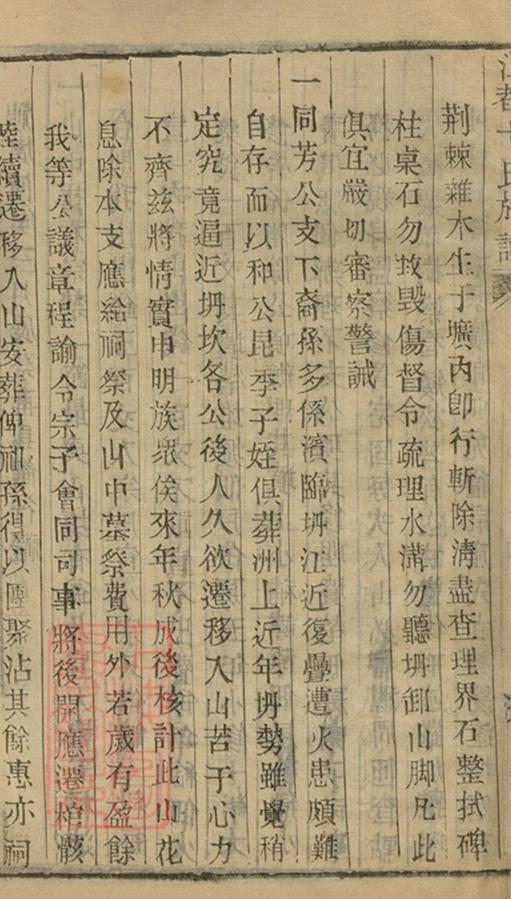 江都卞氏族譜
荆棘雜木生于壙內卽行斬除淸盡查理界石整拭碑
柱桌石勿致毀傷督令疏理水溝勿聽坍卸山脚凡此
俱宜嚴切審察警誡
一同芳公支下裔孫多係濱臨坍江近復疊遭火患頗難
自存而以和公昆季子姪俱葬洲上近年坍勢雖覺稍
定究竟逼近坍坎各公後人久欲遷移入山苦于心力
不齊茲將情實申明族衆俟來年秋成後核計此山花
息除本支應給祠祭及山中墓祭費用外若歲有盈餘
我等公議章程諭令宗子會同司事將後開應遷棺骸
陸續遷移入山安葬俾祖孫得以團聚沾其餘惠亦祠